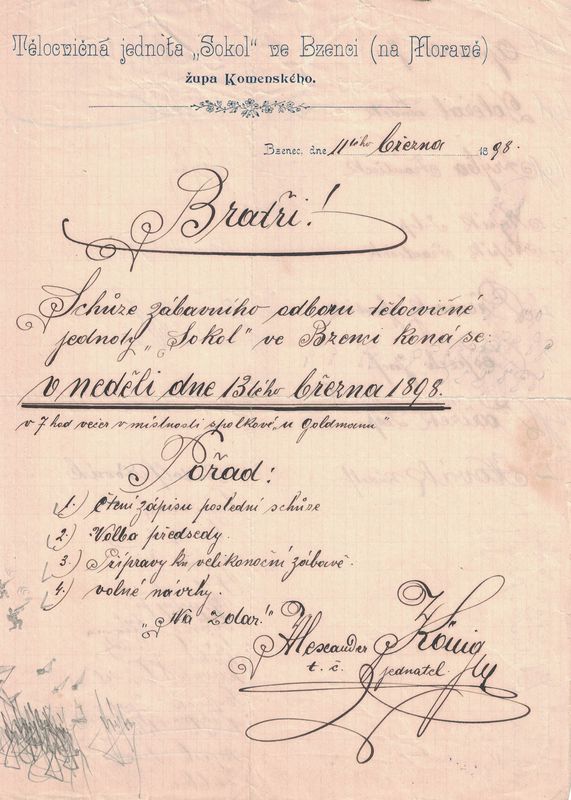 Tělocvičná jednota „Sokol" ve Bzenci (na Moravě)
župa Komenského.
Bzenec, dne 11tého března 1898.
Bratři!
Schůze zábavního odboru tělocvičné
jednoty „Sokol" ve Bzenci koná se:
v neděli dne 13tého března 1898.
v 7 hod večer v místnosti spolkové „u Goldmanů"
Pořad:
1.) Čtení zápisu poslední schůze
2.) Volba předsedy.
3.) Přípravy ku velikonoční zábavě.
4.) volné návrhy.
„Na zdar!"
Alexander König
t. č. jednatel.